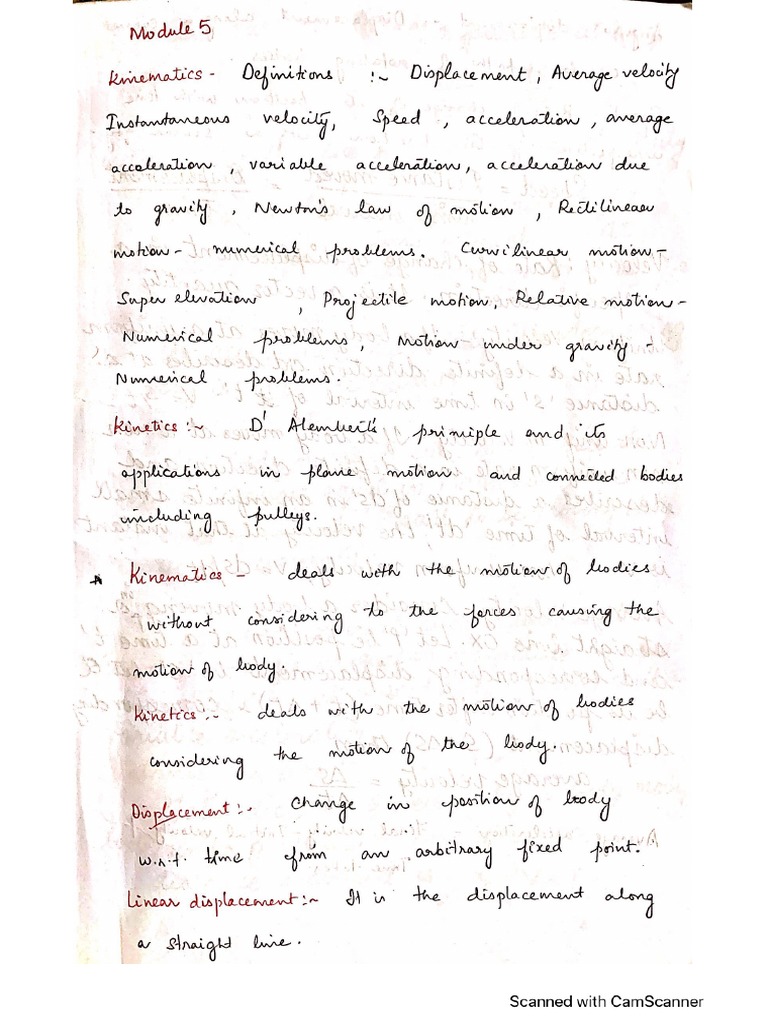 Module 5
Kinematics - Definitions :~ Displacement, Average velocity
Instantaneous velocity, Speed, acceleration, average
acceleration, variable acceleration, acceleration due
to gravity, Newton's law of motion, Rectilinear
motion - numerical problems. Curvilinear motion -
Super elevation, Projectile motion, Relative motion -
Numerical problems, Motion under gravity -
Numerical problems.
Kinetics :~ D' Alembert's priniple and its
applications in plane motion and connected bodies
including pulleys.
* Kinematics - deals with the motion of bodies
without considering to the forces causing the
motion of body.
Kinetics :- deals with the motion of bodies
considering the motion of the body.
Displacement :- change in position of body
w.r.t. time from an arbitrary fixed point.
Linear displacement :~ It is the displacement along
a straight line.
Scanned with CamScanner